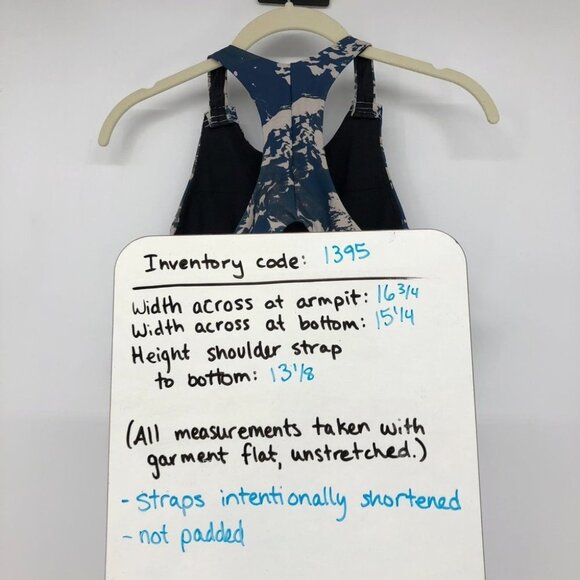 Inventory code: 1395
Width across at armpit: 16 3/4
Width across at bottom: 15 1/4
Height shoulder strap
to bottom: 13 1/8
(All measurements taken with
garment flat, unstretched.)
- Straps intentionally shortened
- not padded